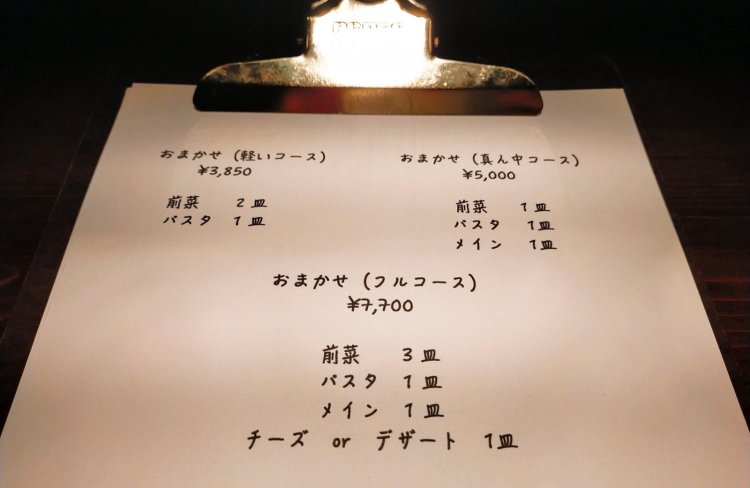 おまかせ (軽いコース)
¥3,850
前菜 2皿
パスタ 1皿
おまかせ (真ん中コース)
¥5,000
前菜 1皿
パスタ 1皿
メイン 1皿
おまかせ (フルコース)
¥7,700
前菜 3皿
パスタ 1皿
メイン 1皿
チーズ or デザート 1皿